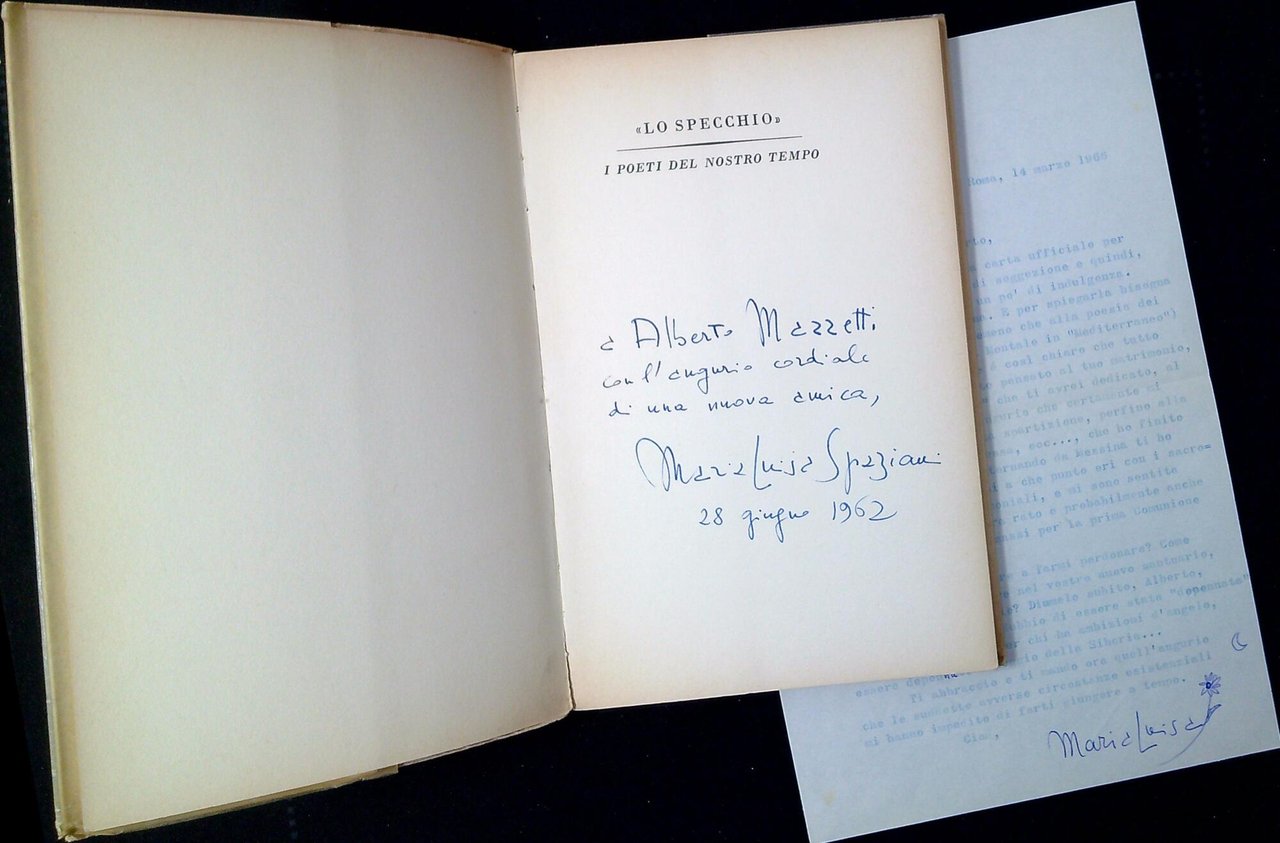 «LO SPECCHIO»
I POETI DEL NOSTRO TEMPO
a Alberto Mazzetti
con l'augurio cordiale
di una nuova amica,
Maria Luisa Spaziani
28 giugno 1962
Roma, 14 marzo 1966
rto,
a carta ufficiale per
di soggezione e quindi,
un po' di indulgenza.
na. E per spiegarla bisogna
meno che alla poesia del
Montale in "Mediterraneo")
è così chiaro che tutto
pensato al tuo matrimonio,
che ti avrei dedicato, al
gurio che certamente mi
spartizione, perfino alla
asa, ecc..., che ho finito
tornando da Messina ti ho
a che punto eri con i sacro=
moniali, e mi sono sentita
rato e probabilmente anche
assi per la prima Comunione
re a farmi perdonare? Come
nel vostro nuovo santuario,
? Dimmelo subito, Alberto,
dubbio di essere stata "depennata"
er chi ha ambizioni d'angelo,
della Siberia...
essere depenna
Ti abbraccio e ti mando ora quell'augurio
che le suddette avverse circostanze esistenziali
mi hanno impedito di farti giungere a tempo.
Ciao,
Maria Luisa